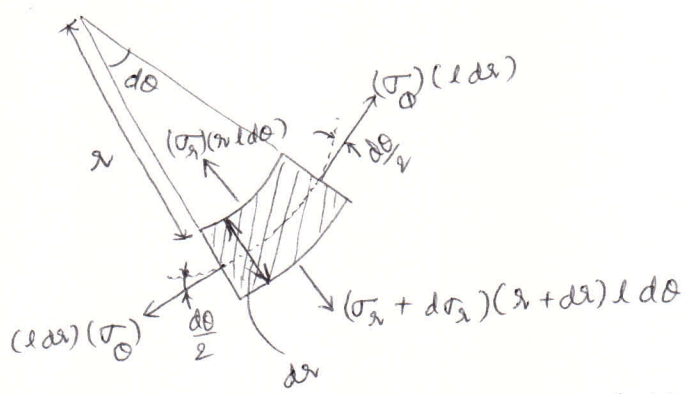 dθ
(σ_θ)(l dr)
(σ_r)(r l dθ)
dθ/2
r
(σ_r + dσ_r)(r + dr) l dθ
(l dr)(σ_θ)
dθ/2
dr